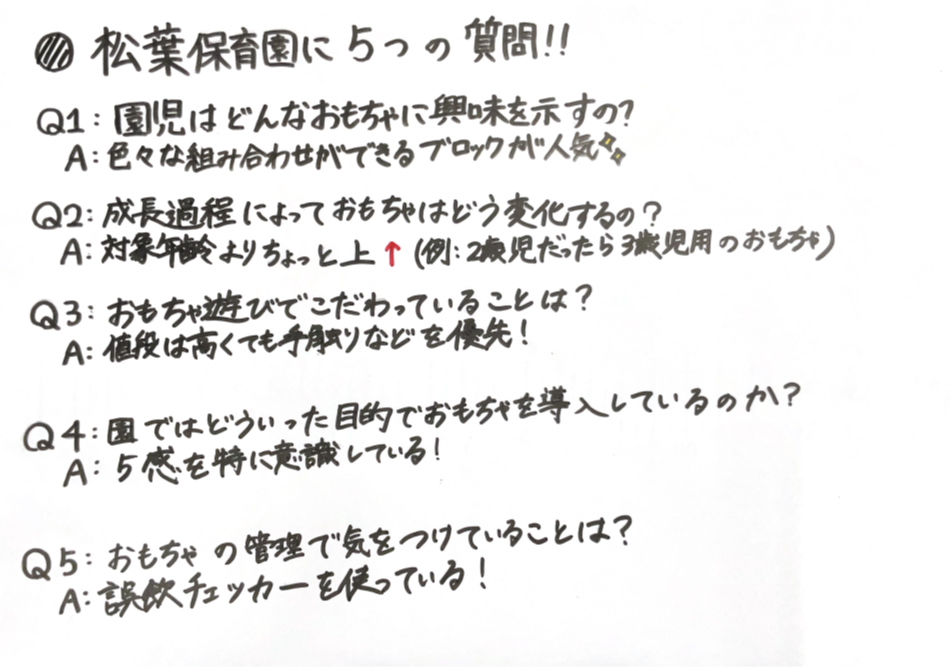 松葉保育園に5つの質問!!
Q1:園児はどんなおもちゃに興味を示すの?
A:色々な組み合わせができるブロックが人気
Q2:成長過程によっておもちゃはどう変化するの?
A:対象年齢よりちょっと上↑(例:2歳児だったら3歳児用のおもちゃ)
Q3:おもちゃ遊びでこだわっていることは?
A:値段は高くても手触りなどを優先!
Q4:園ではどういった目的でおもちゃを導入しているのか?
A:5感を特に意識している!
Q5:おもちゃの管理で気をつけていることは?
A:誤飲チェッカーを使っている!